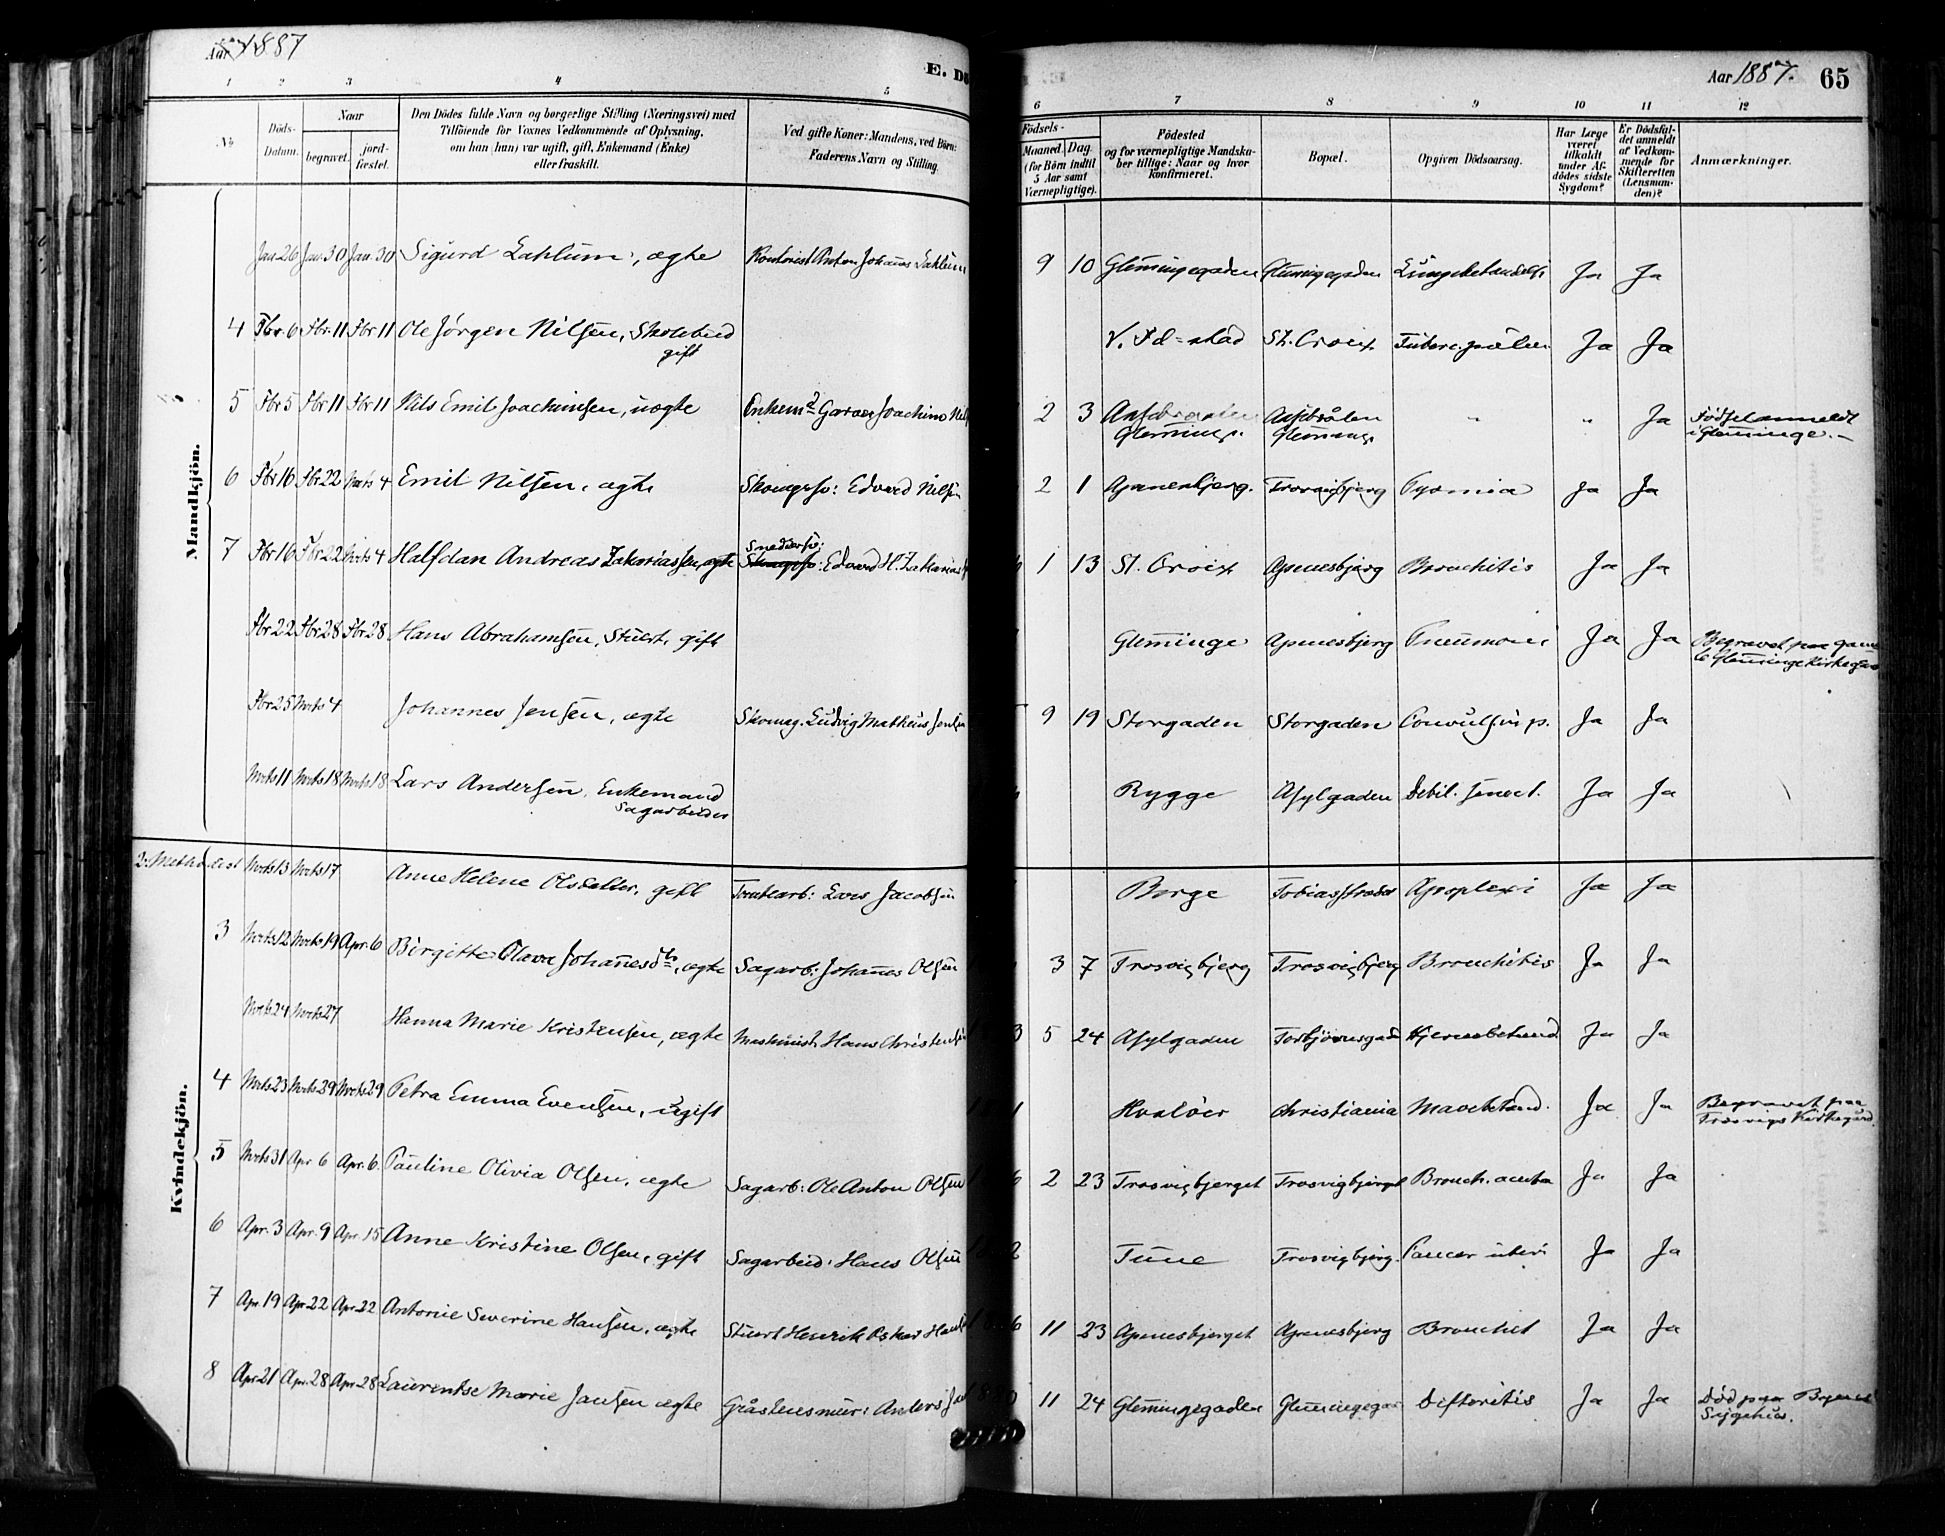 Aar 1887
E.
Aar 1887. 65
1 2 3 4 5
6 7 8 9 10 11 12
No
Döds-Datum.
Naar
begravet.
jord-fæstet.
Den Dödes fulde Navn og borgerlige Stilling (Næringsvei) med
Tilföiende for Voxnes Vedkommende af Oplysning,
om han (hun) var ugift, gift, Enkemand (Enke)
eller fraskilt.
Ved gifte Koner: Mandens, ved Börn:
Faderens Navn og Stilling.
Födsels-
Maaned. Dag.
(for Börn indtil
5 Aar samt
Værnepligtige).
Födested
og for værnepligtige Mandska-
ber tillige: Naar og hvor
konfirmeret.
Bopæl.
Opgiven Dödsaarsag.
Har Læge
været
tilkaldt
under Af-
dödes sidste
Sygdom?
Er Dödsfal-
det anmeldt
af Vedkom-
mende for
Skifteretten
(Lensman-
den)?
Anmærkninger.
Mandkjön.
Jan 26 Jan. 30 Jan. 30 Sigurd Laklum, ægte Kontorist Anton Johannes Laklum 9 10 Glemmingegaden Glemmingegaden Lungebetændelse Ja Ja
4 Fbr. 6 Fbr. 11 Fbr 11 Ole Jörgen Nilsen, Skolebud
gift
St. Croix Ja Ja
5 Fbr 5 Fbr 11 Fbr 11 Nils Emil Joachimsen, uægte Enkemd Garver Joachim 2 3 Glemminge Glemminge " " Ja Födsel anmeldt
i Glemminge.
6 Fbr 16 Fbr 22 Marts 4 Emil Nilsen, ægte Skomagersv: Edvard Nilsen 2 1 Apenesbjerg. Trosvigbjerg Pyæmia Ja Ja
7 Fbr 16 Fbr 22 Marts 4 Halfdan Andreas Zakariassen, ægte Snedkersv: Edvard H. 1 13 St. Croix Apenesbjerg Bronchitis Ja Ja
Fbr 22 Fbr 28 Fbr 28 Hans Abrahamsen, Stuert, gift Glemminge Apenesbjerg Pneumoni Ja Ja Begravet paa gam
le Glemminge Kirkegaard
Fbr 25 Marts 4 Johannes Jensen, ægte Skomag. Ludvig Matheus Jensen 9 19 Storgaden Storgaden Ja Ja
Marts 11 Marts 18 Marts 18 Lars Andersen, Enkemand
Sagarbeider
Rygge Asylgaden Debil. senect. Ja Ja
Kvindekjön.
2. Methodist Marts 13 Marts 17 Anne Helene Olsdatter, gift Tomtearb: Lars Jacobsen Borge Apoplexi Ja Ja
3 Marts 12 Marts 19 Apr. 6 Birgitte Olava Johannesdtr, ægte Sagarb: Johannes Olsen 3 7 Trosvigbjerg Trosvigbjerg Bronchitis Ja Ja
Marts 24 Marts 27 Hanna Marie Kristensen, ægte Maskinist Hans Christensen 3 5 24 Asylgaden Torbjörnsgad Hjernebetænd. Ja Ja
4 Marts 23 Marts 29 Marts 29 Petra Emma Evensen, ugift Hvalöer Christiania Mavebetænd. Ja Ja Begravet paa
Trosvigs Kirkegård.
5 Marts 31 Apr 6 Apr. 6. Pauline Olivia Olsen, ægte Sagarb: Ole Anton Olsen 6 2 23 Trosvigbjerget Trosvigbjerget Bronch. acuta Ja Ja
6 Apr. 3 Apr. 9 Apr. 15 Anne Kristine Olsen, gift Sagarbeid: Hans Olsen 2 Tune Trosvigbjerg. Cancer uteri Ja Ja
7 Apr. 19 Apr. 22 Apr. 22 Antonie Severine Hansen, ægte Stuert Henrik Oskar 6 11 23 Apenesbjerget Apenesbjerg Bronchit Ja Ja
8 Apr. 21 Apr. 28 Apr. 28 Laurentse Marie Jansen ægte Gråstensmur: Anders 11 24 Glemmingegaden Glemmingegad Difteritis Ja Ja Död paa Byens
Sygehus.